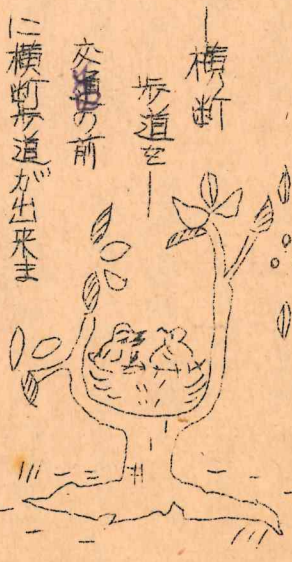 ―横断
歩道を―
交通の前
に横断歩道が出来ま